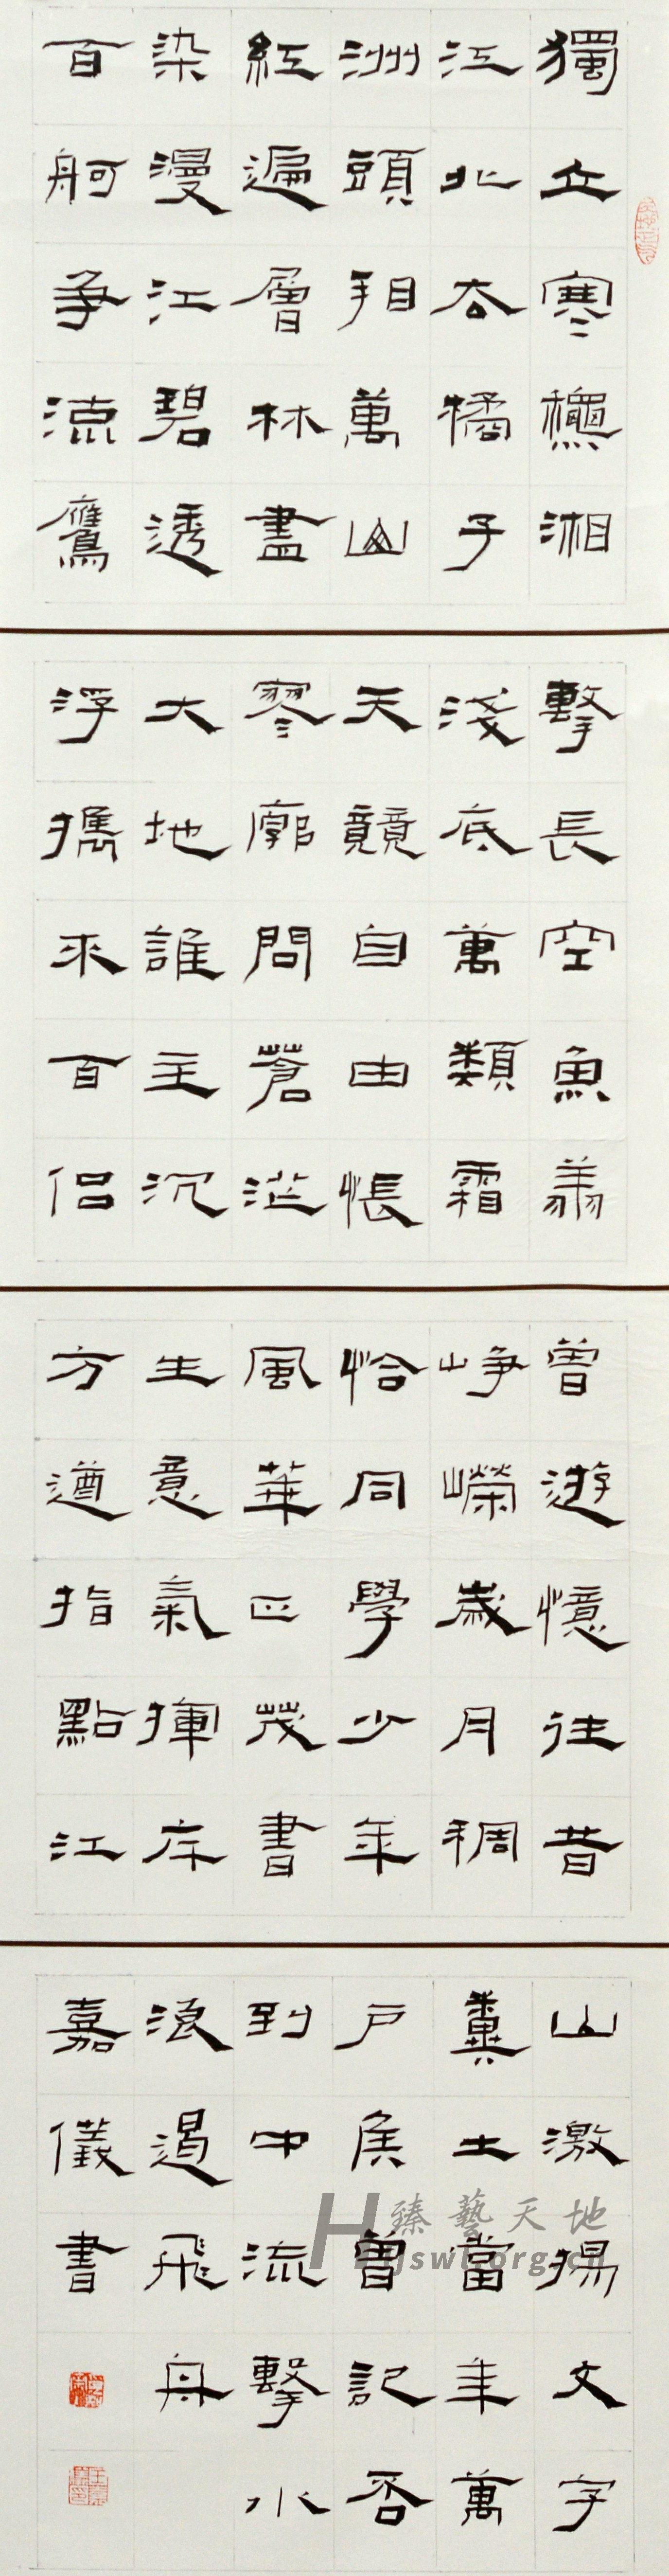 獨立寒龝湘
江北去橘子
洲頭看萬山
紅遍層林盡
染漫江碧透
百舸爭流鷹
擊長空魚翔
淺底萬類霜
天競自由悵
寥廓問蒼茫
大地誰主沉
浮攜來百侶
曾遊憶往昔
崢嶸歲月稠
恰同學少年
風華正茂書
生意氣揮斥
方遒指點江
山激揚文字
糞土當年萬
戶侯曾記否
到中流擊水
浪遏飛舟
嘉儀書
臻藝天地